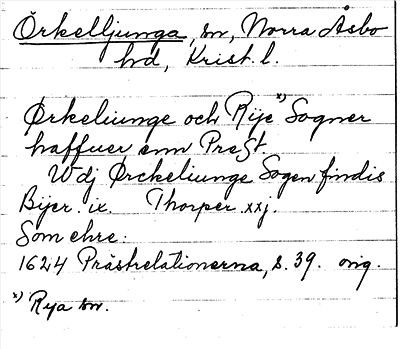 Örkelljunga, sn, Norra Åsbo
hd, Krist. l.
Ørkeliunge och Rije x) Sogner
haffuer enn Prest.
Wdj Ørckeliunge Sogen findis
Bijer. ix. Thorper. xxj.
Som ehre:
1624 Prästrelationerna, s. 39. orig.
x) Rya sn.